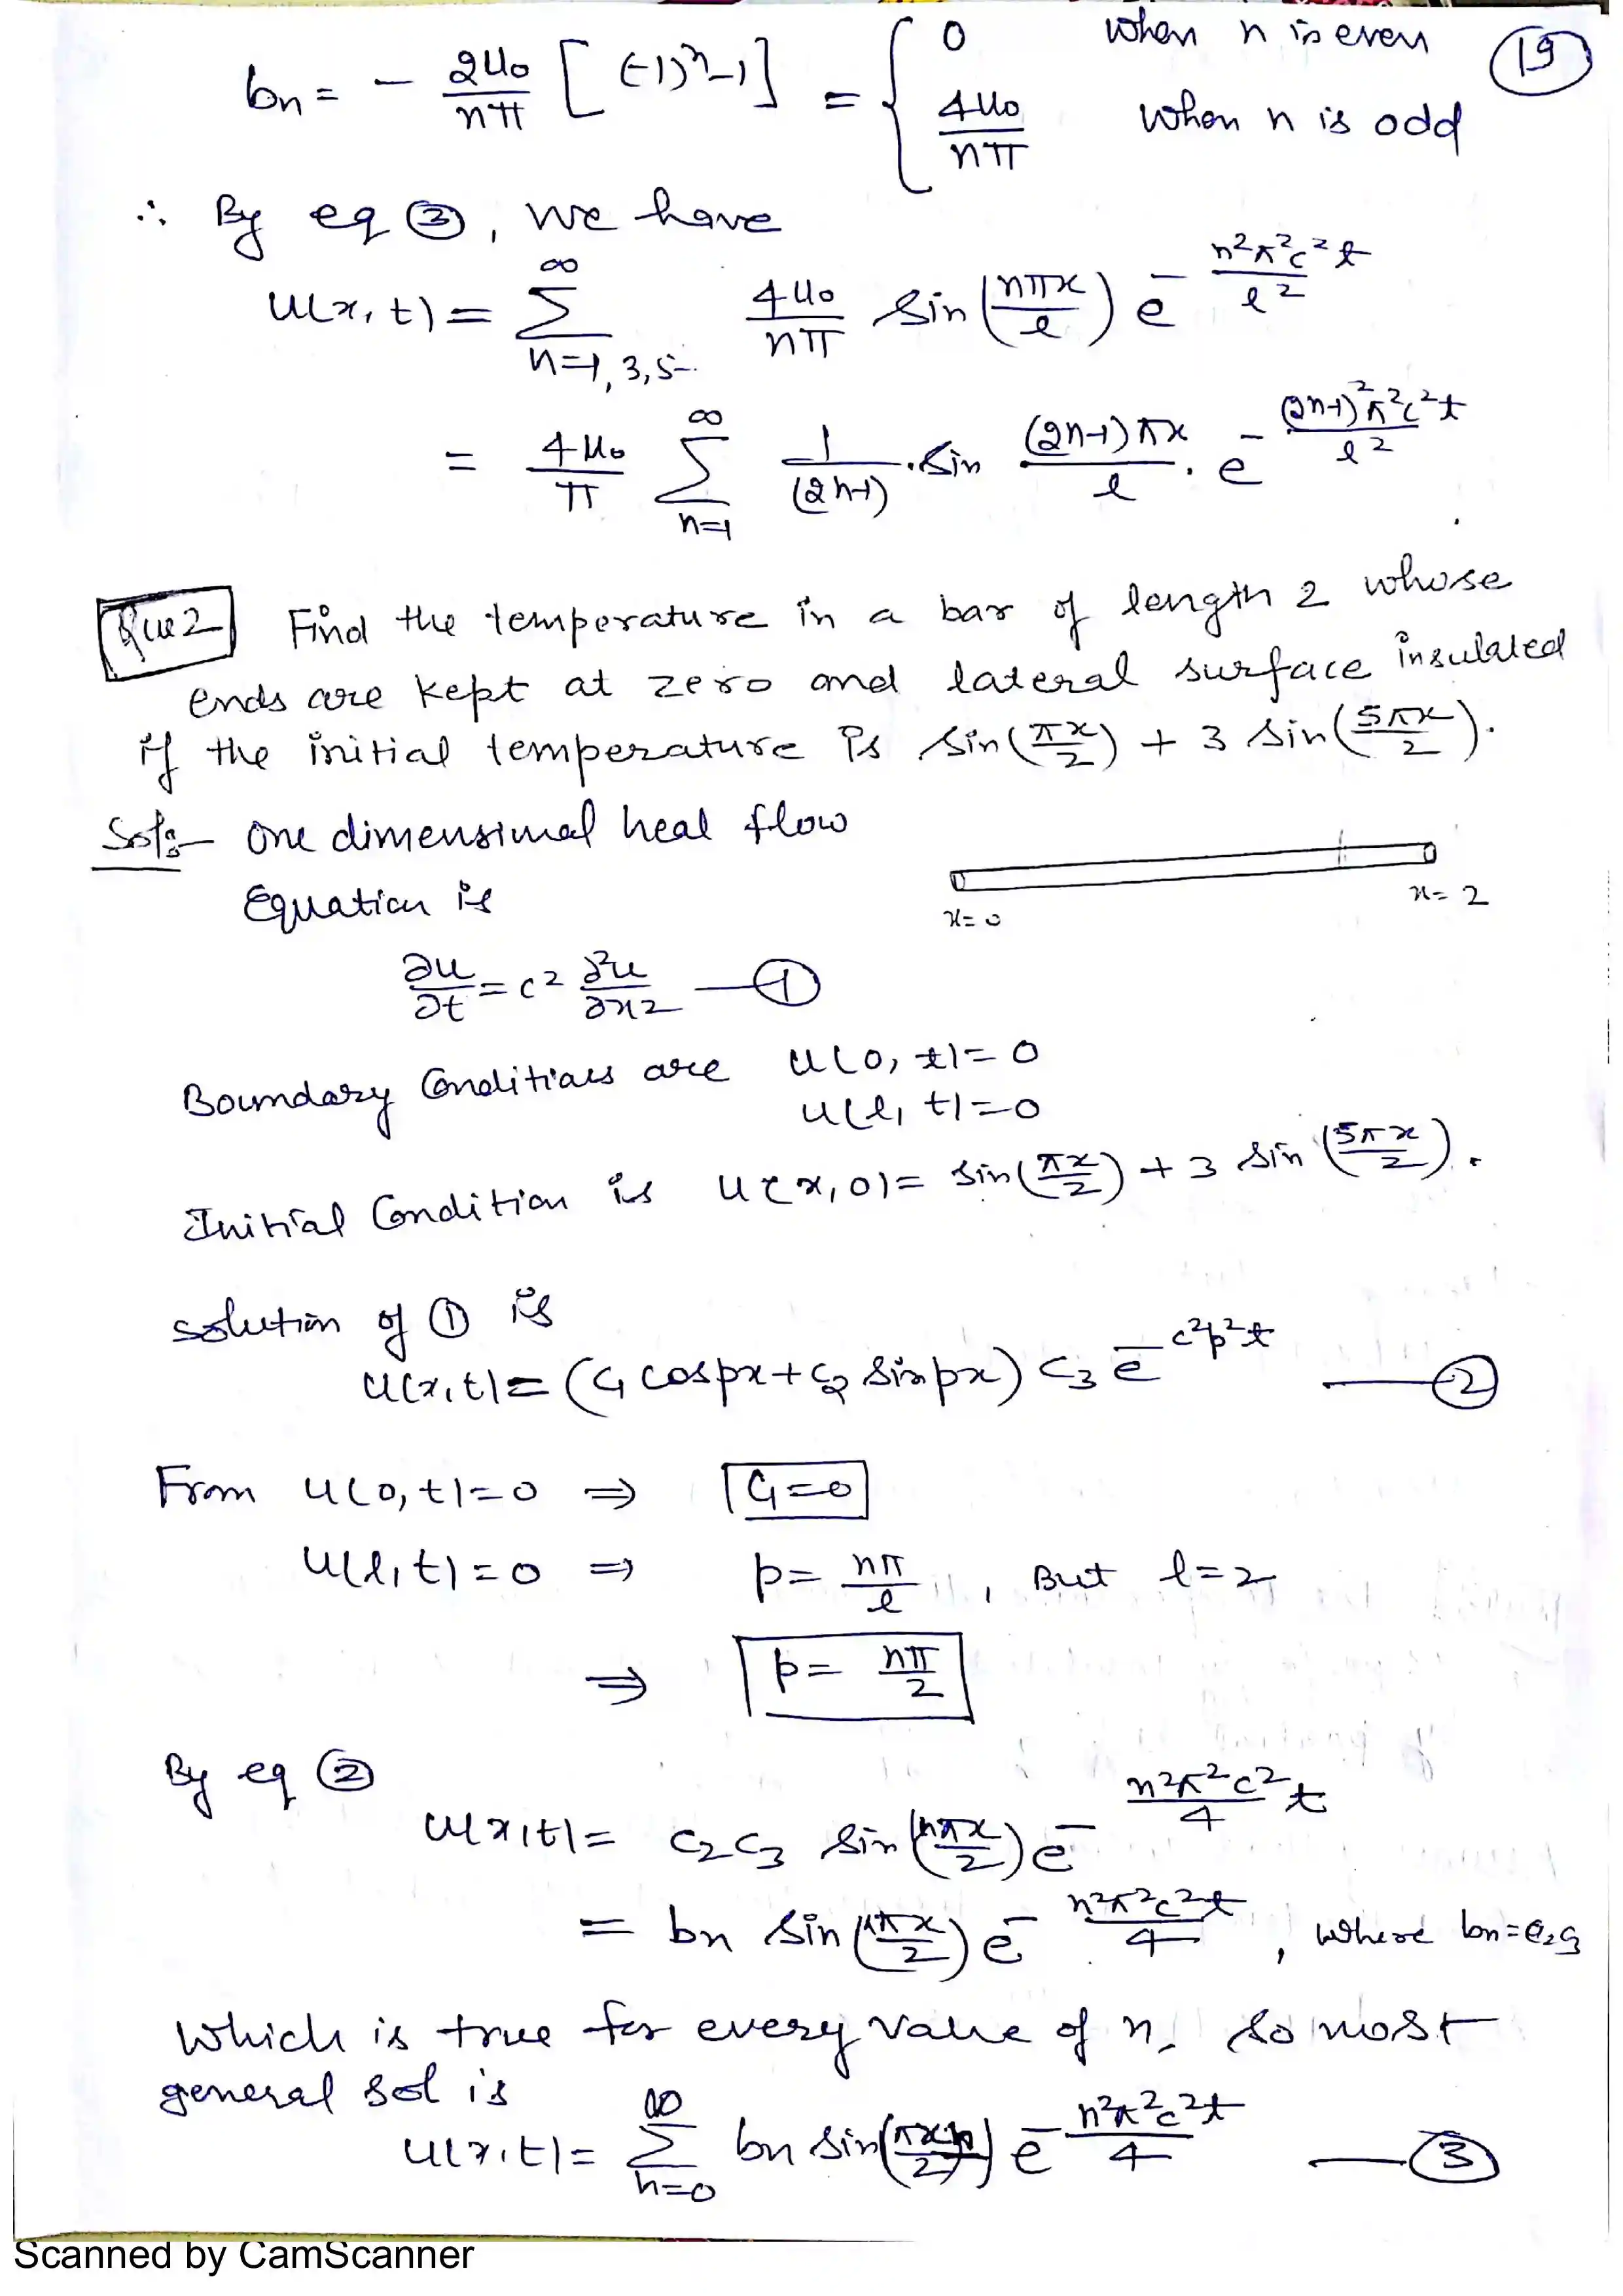 bn = - 2u₀/nπ [ (-1)ⁿ-1 ] = { 0 when n is even
4u₀/nπ when n is odd
(19)
∴ By eq ③, we have
u(x,t) = ∑_{n=1,3,5-..}^{∞} 4u₀/nπ sin(nπx/l) e^{- n²π²c²t/l²}
= 4u₀/π ∑_{n=1}^{∞} 1/(2n-1) . sin (2n-1)πx/l . e^{- (2n-1)²π²c²t/l²}
Que 2 Find the temperature in a bar of length 2 whose
ends are kept at zero and lateral surface insulated
if the initial temperature is sin(πx/2) + 3 sin(5πx/2).
Sol:- One dimensional heat flow
Equation is
x=0 x=2
∂u/∂t = c² ∂²u/∂x² —①
Boundary Conditions are u(0,t)=0
u(l,t)=0
Initial Condition is u(x,0)= sin(πx/2) + 3 sin(5πx/2).
solution of ① is
u(x,t)= (c₁ cospx + c₂ sinpx) c₃ e^{-c²p²t} —②
From u(0,t)=0 ⇒ c₁=0
u(l,t)=0 ⇒ p= nπ/l , But l=2
⇒ p= nπ/2
By eq ②
u(x,t)= c₂c₃ sin(nπx/2) e^{- n²π²c²t/4}
= bn sin(nπx/2) e^{- n²π²c²t/4} , where bn=c₂c₃
Which is true for every value of n. So most
general sol is
u(x,t)= ∑_{n=0}^{∞} bn sin(πxn/2) e^{- n²π²c²t/4} —③
Scanned by CamScanner